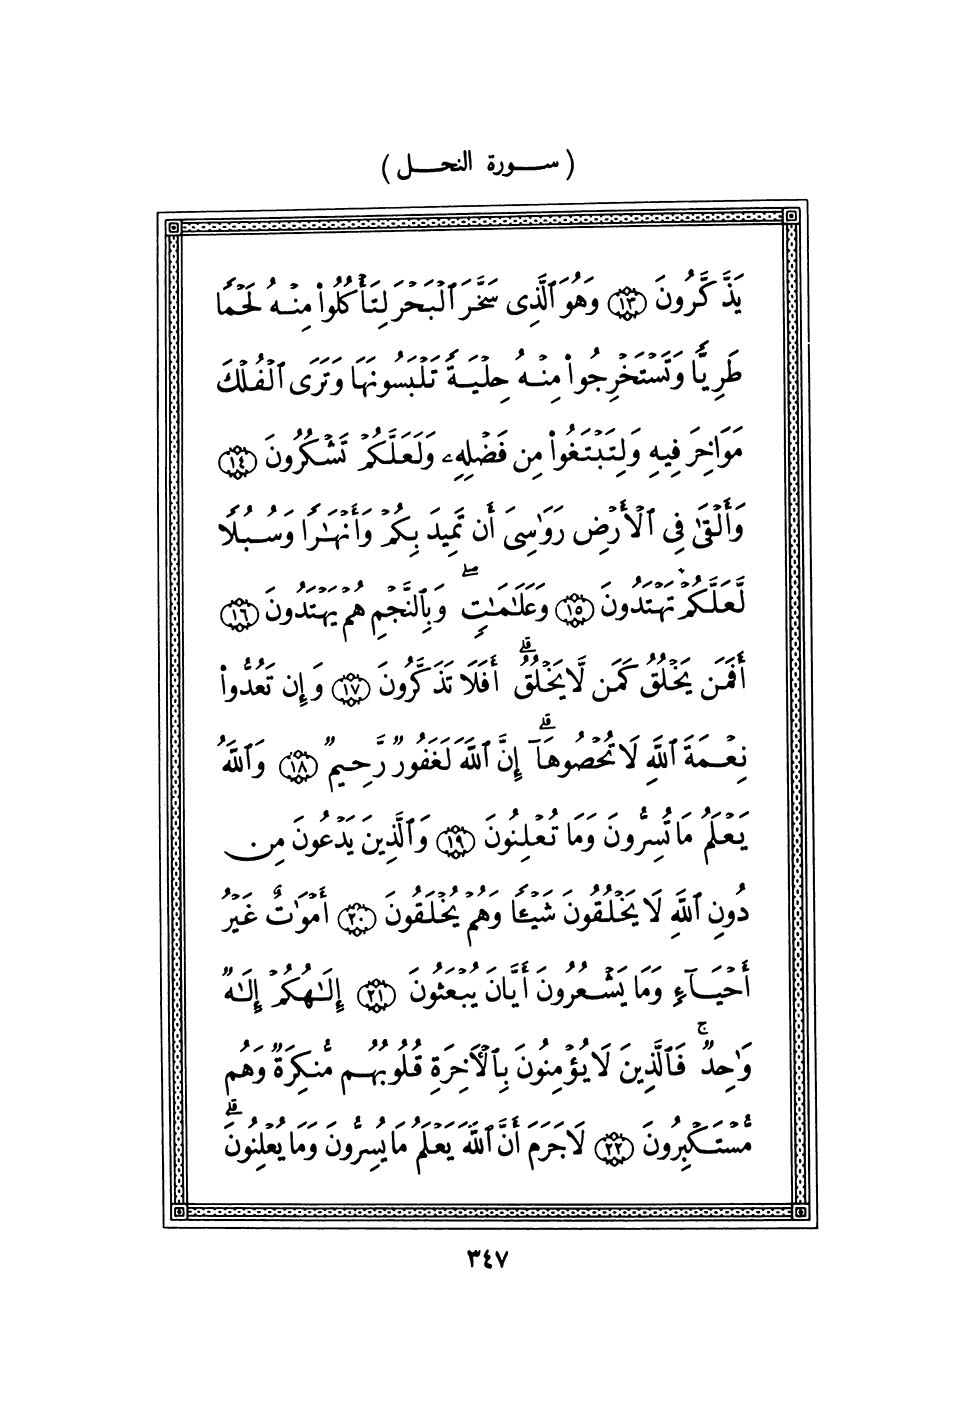 ( سورة النحل )
يَذَّكَّرُونَ ﴿١٣﴾ وَهُوَ ٱلَّذِى سَخَّرَ ٱلْبَحْرَ لِتَأْكُلُوا۟ مِنْهُ لَحْمًا
طَرِيًّا وَتَسْتَخْرِجُوا۟ مِنْهُ حِلْيَةً تَلْبَسُونَهَا وَتَرَى ٱلْفُلْكَ
مَوَاخِرَ فِيهِ وَلِتَبْتَغُوا۟ مِن فَضْلِهِۦ وَلَعَلَّكُمْ تَشْكُرُونَ ﴿١٤﴾
وَأَلْقَىٰ فِى ٱلْأَرْضِ رَوَٰسِىَ أَن تَمِيدَ بِكُمْ وَأَنْهَٰرًا وَسُبُلًا
لَّعَلَّكُمْ تَهْتَدُونَ ﴿١٥﴾ وَعَلَٰمَٰتٍ ۖ وَبِٱلنَّجْمِ هُمْ يَهْتَدُونَ ﴿١٦﴾
أَفَمَن يَخْلُقُ كَمَن لَّا يَخْلُقُ ۗ أَفَلَا تَذَكَّرُونَ ﴿١٧﴾ وَإِن تَعُدُّوا۟
نِعْمَةَ ٱللَّهِ لَا تُحْصُوهَآ ۗ إِنَّ ٱللَّهَ لَغَفُورٌ رَّحِيمٌ ﴿١٨﴾ وَٱللَّهُ
يَعْلَمُ مَا تُسِرُّونَ وَمَا تُعْلِنُونَ ﴿١٩﴾ وَٱلَّذِينَ يَدْعُونَ مِن
دُونِ ٱللَّهِ لَا يَخْلُقُونَ شَيْـًٔا وَهُمْ يُخْلَقُونَ ﴿٢٠﴾ أَمْوَٰتٌ غَيْرُ
أَحْيَآءٍ وَمَا يَشْعُرُونَ أَيَّانَ يُبْعَثُونَ ﴿٢١﴾ إِلَٰهُكُمْ إِلَٰهٌ
وَٰحِدٌ ۚ فَٱلَّذِينَ لَا يُؤْمِنُونَ بِٱلْأَخِرَةِ قُلُوبُهُم مُّنكِرَةٌ وَهُم
مُّسْتَكْبِرُونَ ﴿٢٢﴾ لَا جَرَمَ أَنَّ ٱللَّهَ يَعْلَمُ مَا يُسِرُّونَ وَمَا يُعْلِنُونَ ۗ
٣٤٧